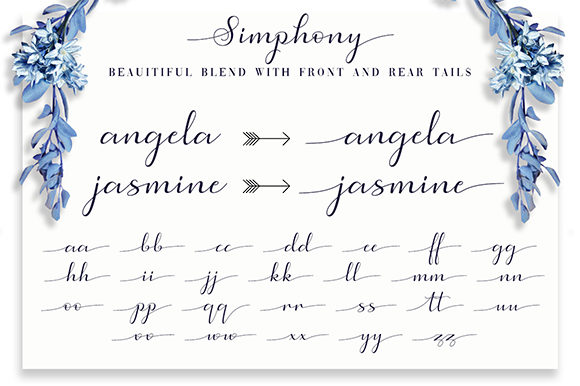 Simphony
BEAUITIFUL BLEND WITH FRONT AND REAR TAILS
angela angela
jasmine jasmine
aa bb cc dd ee ff gg
hh ii jj kk ll mm nn
oo pp qq rr ss tt uu
vv ww xx yy zz